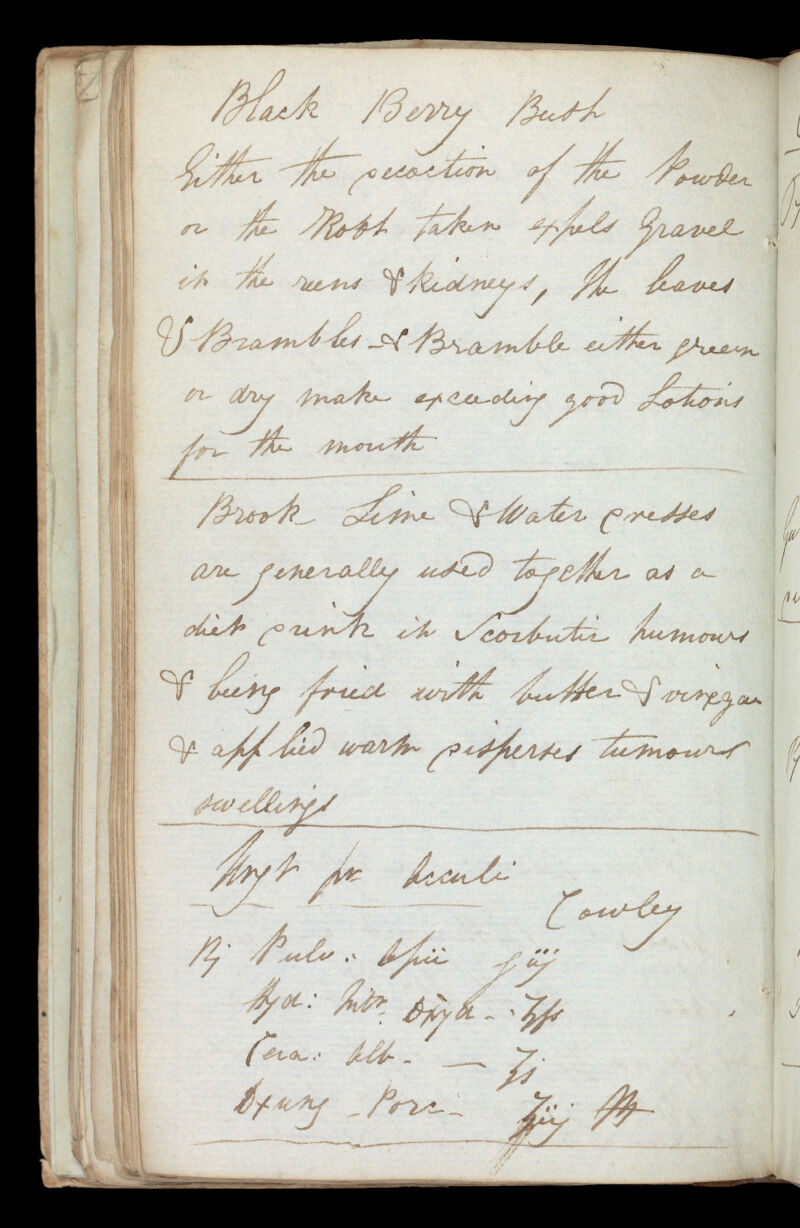 Black Berry Bush
Either the decoction of the Powder
or the Root taken expels Gravel
in the reins & kidneys, the leaves
& Brambles & Bramble either green
or dry make exceeding good Lotions
for the mouth
Brook Lime & Water Cresses
are generally used together as a
diet drink in Scorbutic humours
& being fried with butter & vinegar
& applied warm disperses tumours
swellings
Ungt pr Occuli
Cowley
Rj Pulv: Opii
Hyd: Nitr Oxyd - ʒfs
Cera: Alb - ʒj
Axung - Porc - ʒiij